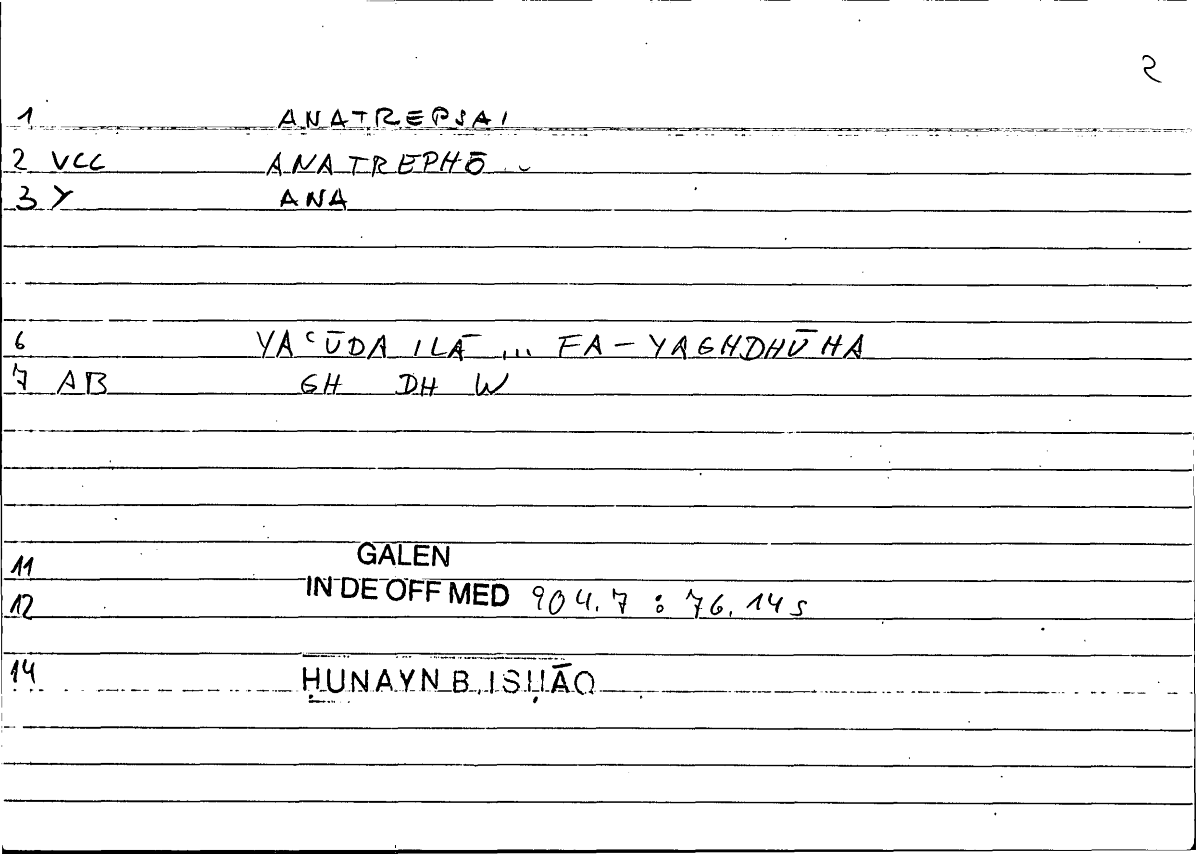 2
1 ANATREPSAI
2 VCC ANATREPHŌ
3 Y ANA
6 YAʿŪDA ILĀ ... FA-YAGHDHŪHA
7 AB GH DH W
11 GALEN
12 IN DE OFF MED 904.7 : 76.14 s
14 ḤUNAYN B. ISḤĀQ